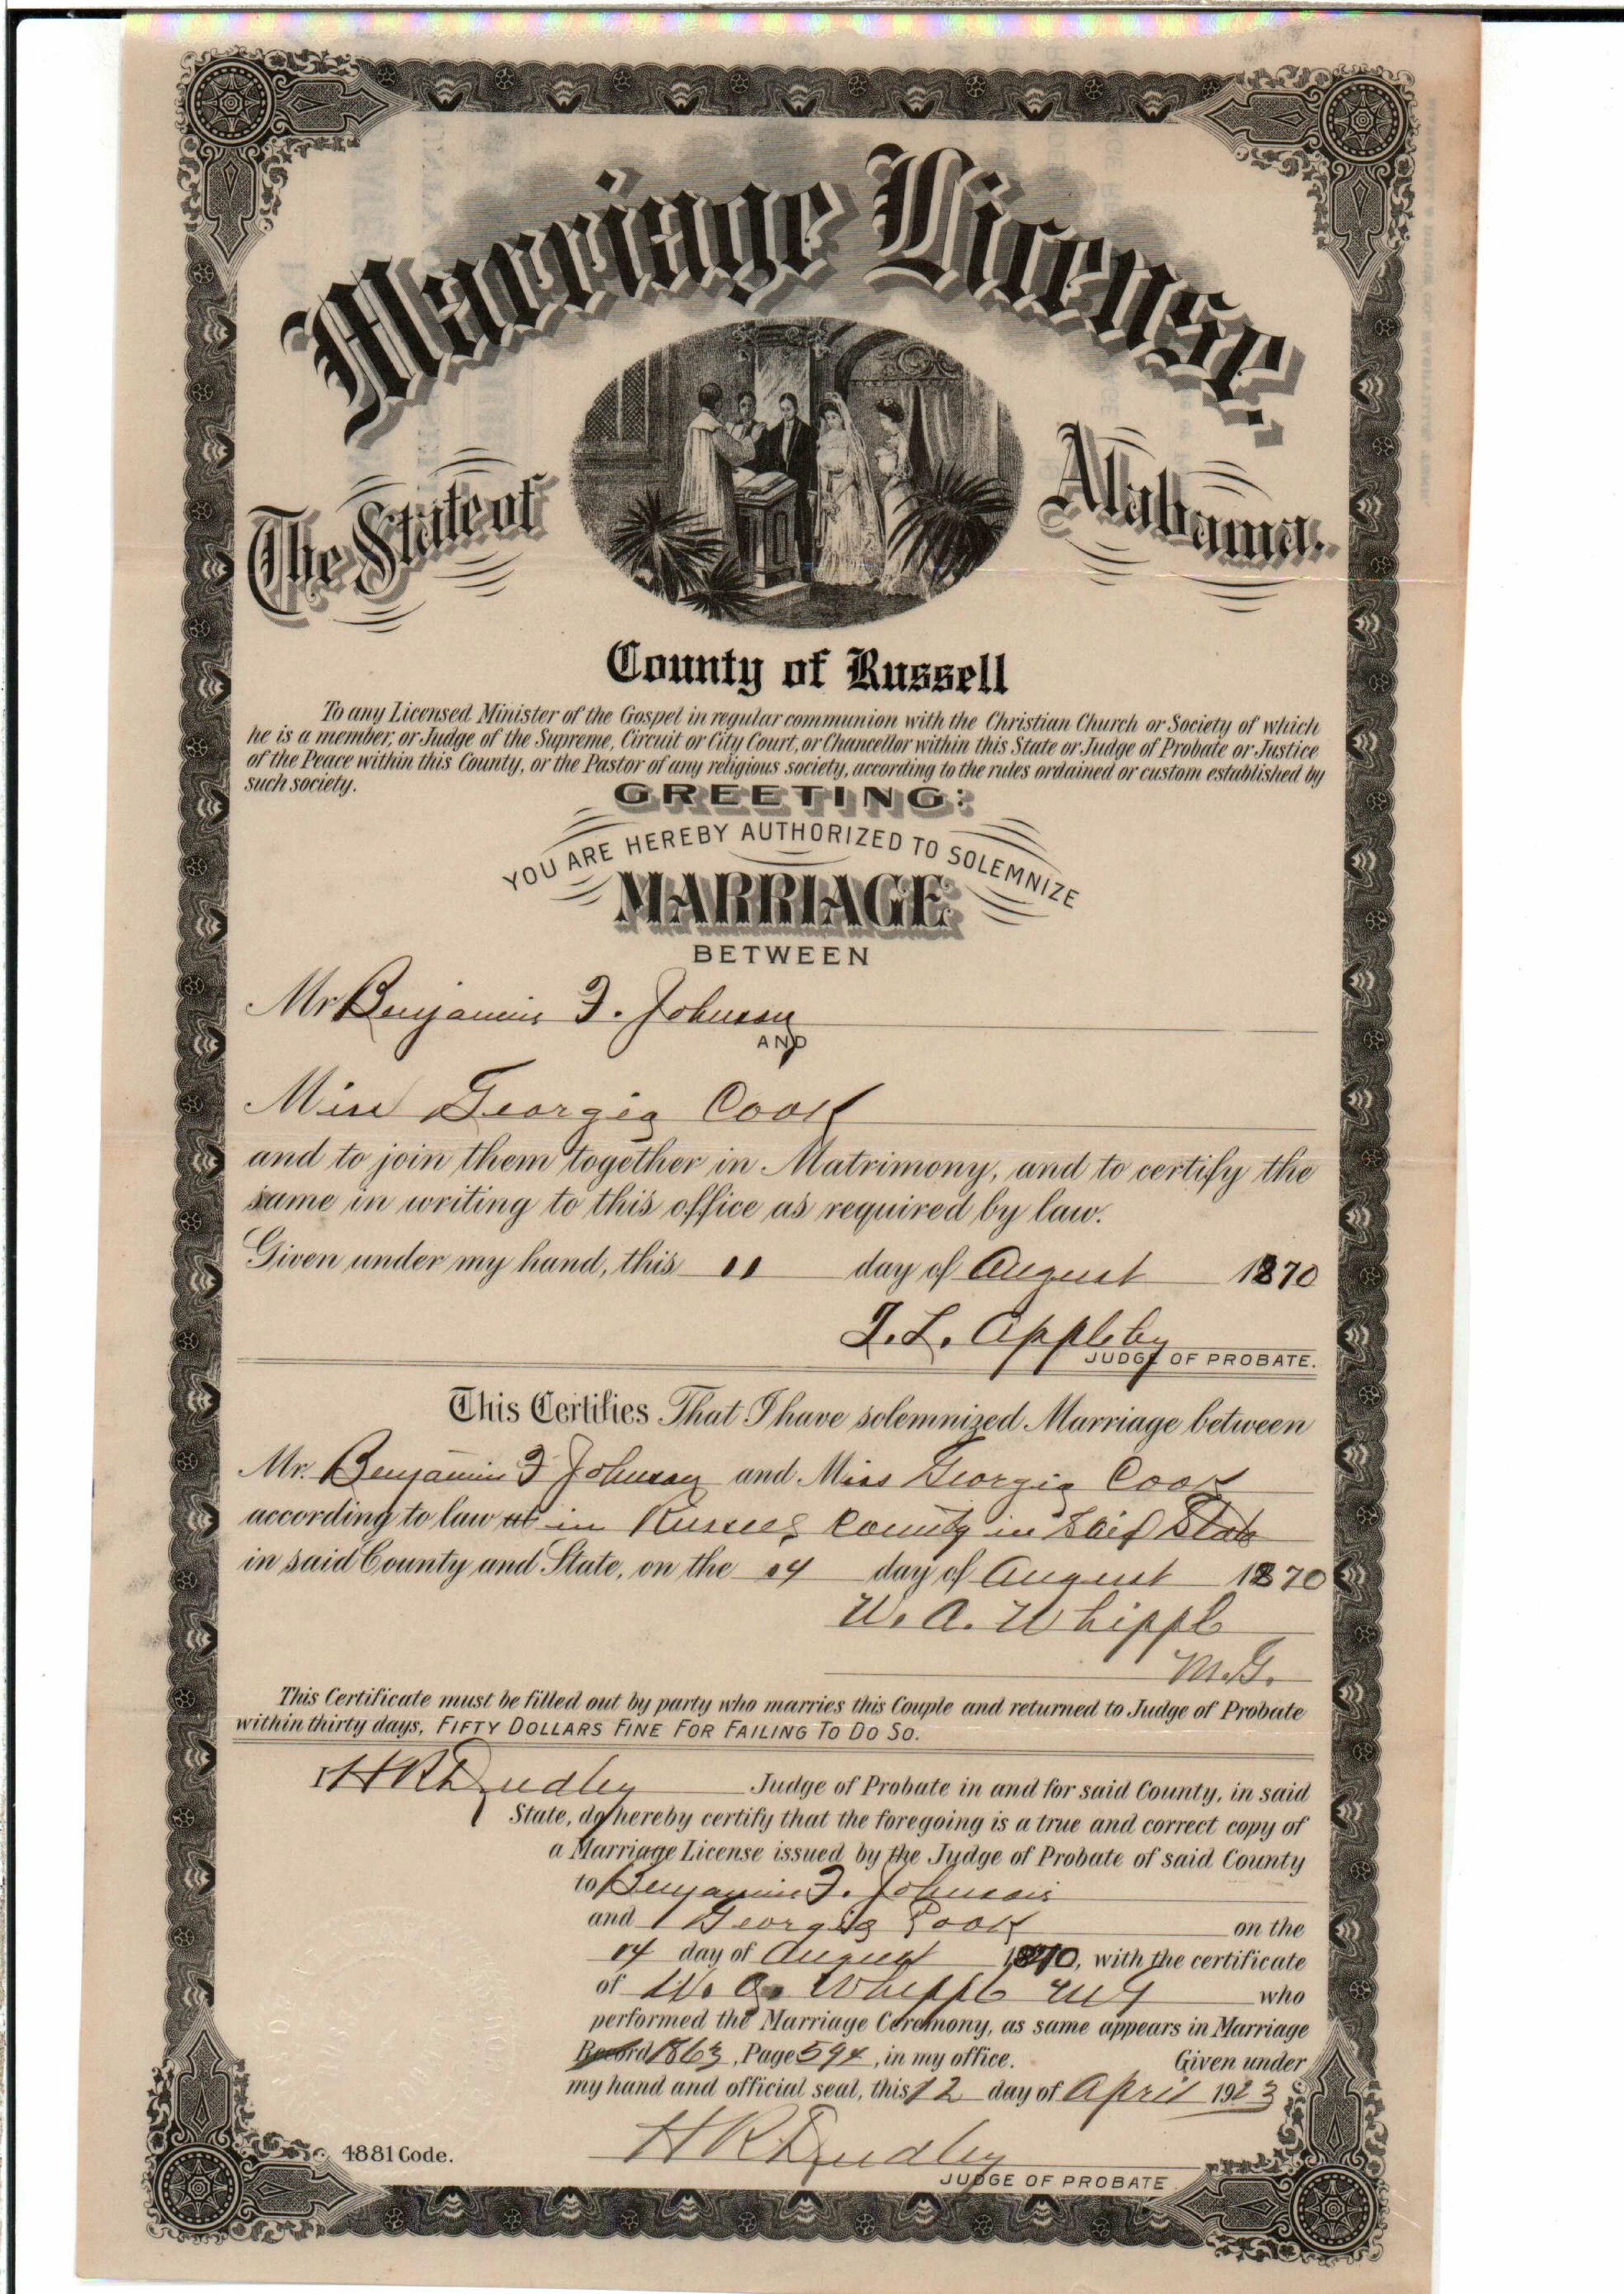 Marriage License.
The State of Alabama.
County of Russell
To any Licensed Minister of the Gospel in regular communion with the Christian Church or Society of which
he is a member, or Judge of the Supreme, Circuit or City Court, or Chancellor within this State or Judge of Probate or Justice
of the Peace within this County, or the Pastor of any religious society, according to the rules ordained or custom established by
such society.
GREETING:
YOU ARE HEREBY AUTHORIZED TO SOLEMNIZE
MARRIAGE
BETWEEN
Mr Benjamin F. Johnson
AND
Miss Georgia Cook
and to join them together in Matrimony, and to certify the
same in writing to this office as required by law.
Given under my hand, this 11 day of August 1870
F. L. Appleby
JUDGE OF PROBATE.
This Certifies That I have solemnized Marriage between
Mr. Benjamin F Johnson and Miss Georgia Cook
according to law at in Russell County in Said State
in said County and State, on the 14 day of August 1870
W. A. Whipple
M.G.
This Certificate must be filled out by party who marries this Couple and returned to Judge of Probate
within thirty days, FIFTY DOLLARS FINE FOR FAILING TO DO SO.
I H R Dudley Judge of Probate in and for said County, in said
State, do hereby certify that the foregoing is a true and correct copy of
a Marriage License issued by the Judge of Probate of said County
to Benjamin F. Johnson
and Georgia Cook on the
14 day of August 1870, with the certificate
of W. A. Whipple MG who
performed the Marriage Ceremony, as same appears in Marriage
Record 1863, Page 594, in my office. Given under
my hand and official seal, this 12 day of April 1923
H R Dudley
4881 Code.
JUDGE OF PROBATE